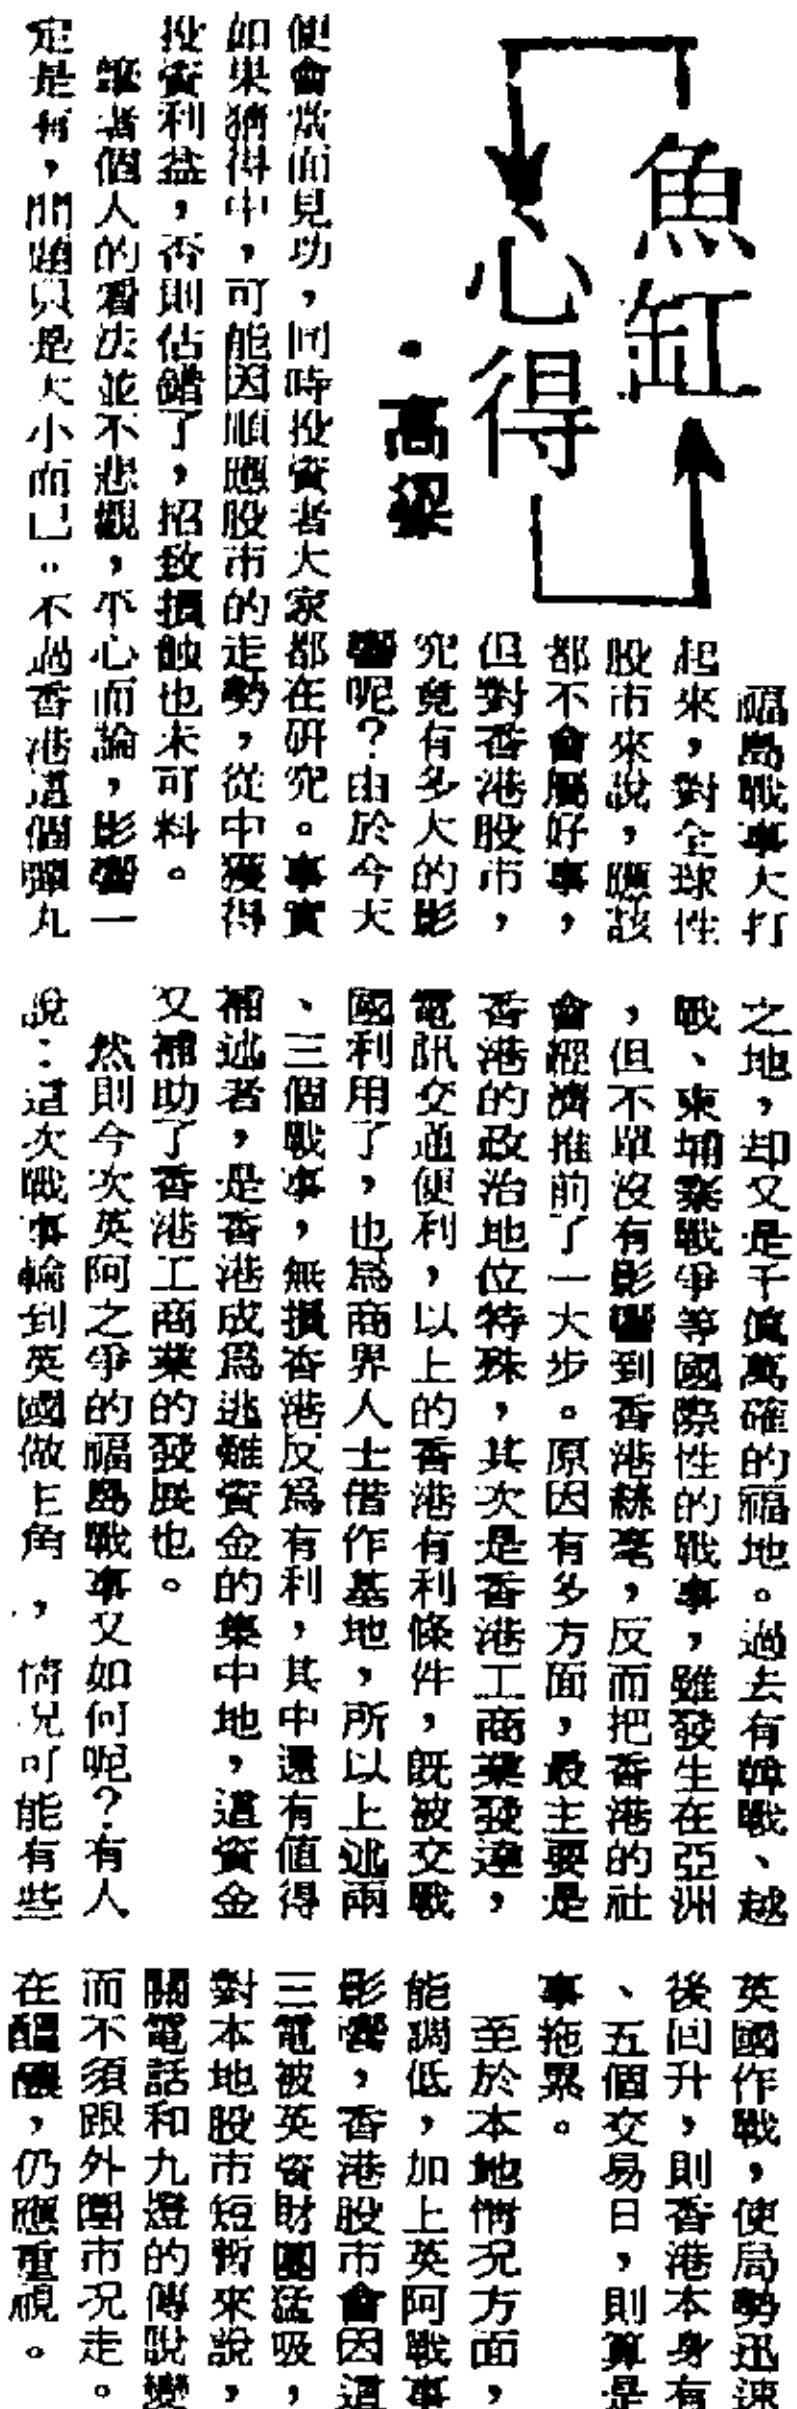 魚缸
心得
·高梁
福島戰事大打
起來，對全球性
股市來說，應該
都不會屬好事，
但對香港股市，
究竟有多大的影
響呢？由於今天
便會當面見功，同時投資者大家都在研究。事實
如果猜得中，可能因順應股市的走勢，從中獲得
投資利益，否則估錯了，招致損蝕也未可料。
筆者個人的看法並不悲觀，平心而論，影響一
定是有，問題只是大小而已。不過香港這個彈丸
之地，却又是千眞萬確的福地。過去有韓戰、越
戰、柬埔寨戰爭等國際性的戰事，雖發生在亞洲
，但不單沒有影響到香港絲毫，反而把香港的社
會經濟推前了一大步。原因有多方面，最主要是
香港的政治地位特殊，其次是香港工商業發達，
電訊交通便利，以上的香港有利條件，既被交戰
國利用了，也爲商界人士借作基地，所以上述兩
、三個戰事，無損香港反爲有利，其中還有值得
補述者，是香港成爲逃難資金的集中地，這資金
又補助了香港工商業的發展也。
然則今次英阿之爭的福島戰事又如何呢？有人
說：這次戰事輪到英國做主角，情况可能有些
英國作戰，使局勢迅速
後回升，則香港本身有
、五個交易日，則算是
事拖累。
至於本地情况方面，
能調低，加上英阿戰事
影響，香港股市會因這
三電被英資財團猛吸，
對本地股市短暫來說，
關電話和九燈的傳說變
而不須跟外圍市况走。
在醞釀，仍應重視。